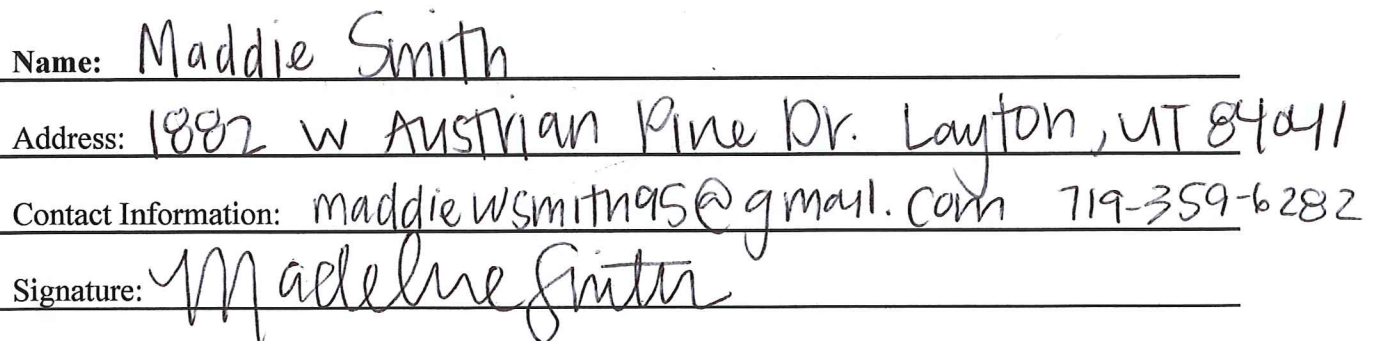 Name: Maddie Smith
Address: 1882 W Austrian Pine Dr. Layton, UT 84041
Contact Information: maddiewsmith95@gmail.com 719-359-6282
Signature: Madeline Smith